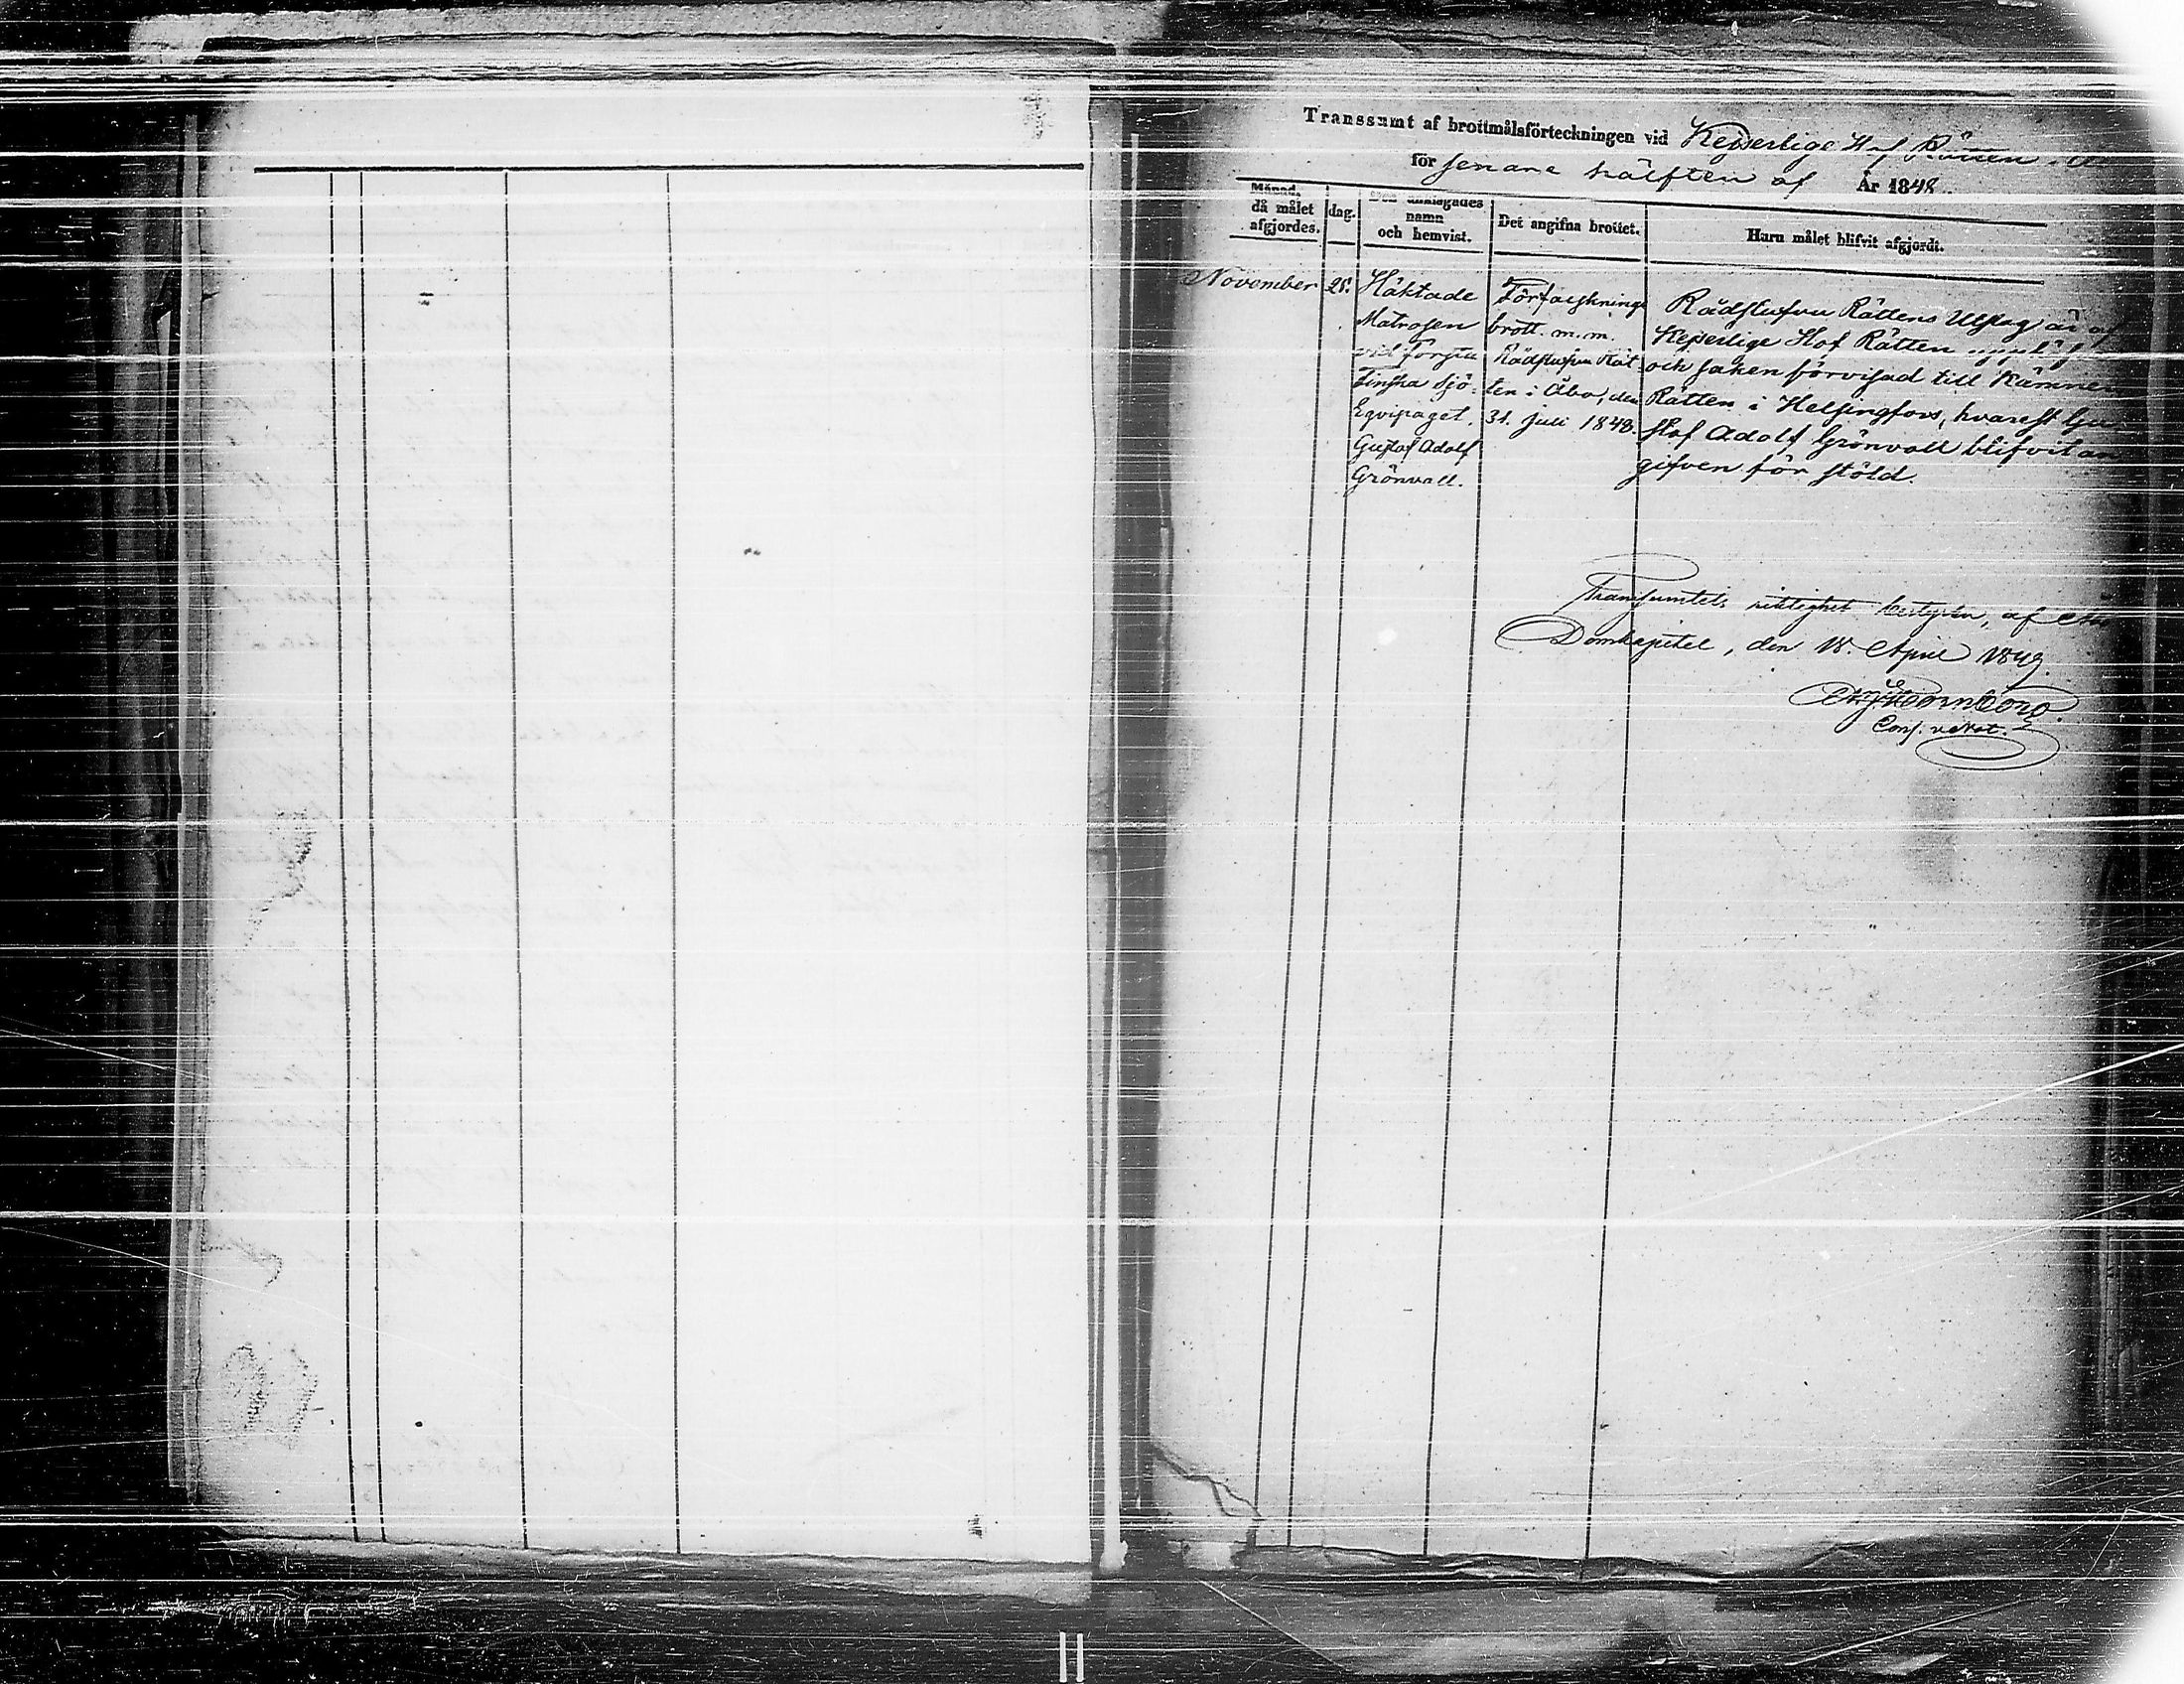 Transsumt af brottmålsförteckningen vid Kejserlige Hof Rätten i
för senare hälften af År 1848.
Månad, då målet afgjordes.
dag.
Den anklagades namn och hemvist.
Det angifna brottet.
Huru målet blifvit afgjordt.
November 28.
Häktade
Matrosen
vid Första
Finska Sjö-
Eqvipaget,
Gustaf Adolf
Grönvall.
Förfalsknings
brott. m.m.
Rådstufvu Rät-
ten i Åbo, den
31. Juli 1848.
Rådstufvu Rättens Utslag är af
Kejserlige Hof Rätten upphäf
och saken förvisad till Kämners
Rätten i Helsingfors, hvarest Gu-
staf Adolf Grönvall blifvit an-
gifven för stöld.
Transumtets riktighet bestyrka, af
Domkapitel, den 18. April 1849.
Cons. o Not.